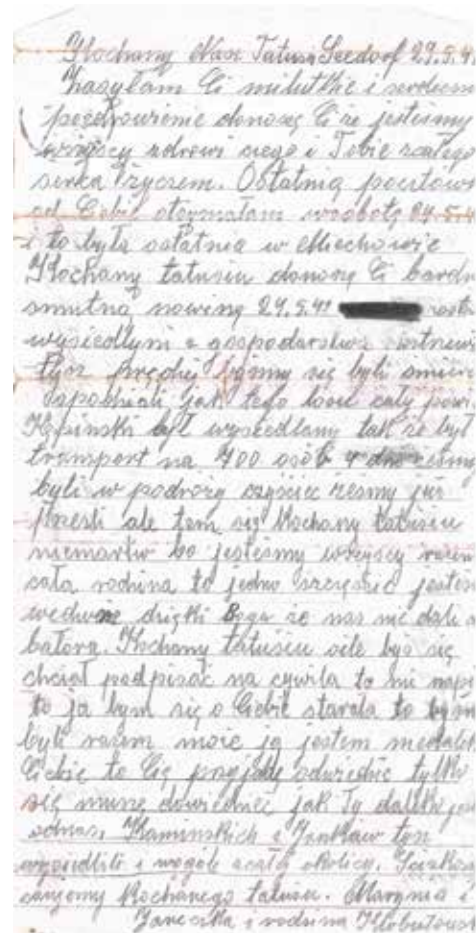 Kochany Nasz Tatusiu Seedorf 29.5.4
Zasyłam Ci milutkie i serdeczn
pozdrowienie donoszę Ci że jesteśmy
wszyscy zdrowi czego i Tobie z całego
serca życzem. Ostatnią pocztow
od Ciebie otrzymałam w sobotę 24.5.
i to była ostatnia w Miechowie
Kochany tatusiu donoszę Ci bard
smutną nowinę 24.5.41
wysiedlymi z gospodarstwa
się byli
jak tego cały pow
Kępinski był wysiedlany tak że był
transport na 700 osób 4 dni żeśmy
byli w podroży czyściec żeśmy już
przesli ale tem się Kochany tatusiu
niemartw bo jesteśmy wszyscy razem
cała rodzina to jedno szczęście jestem
we dwoje dzięki Boga że nas nie dali
Kochany tatusiu byś się
chciał podpisać na cywila to mi napi
to ja bym się o Ciebie starała to bysm
byli razem moze ja jestem niedalek
Ciebie to Cię przyjadę odwiedzić tylko
się muszę dowiedzieć jak Ty daleki je
odnas. Kaminskich i tesz
wysiedlili i wogóle z całej okolicy.
Kochanego tatusiu. Marynia i
Janeczka i rodzina